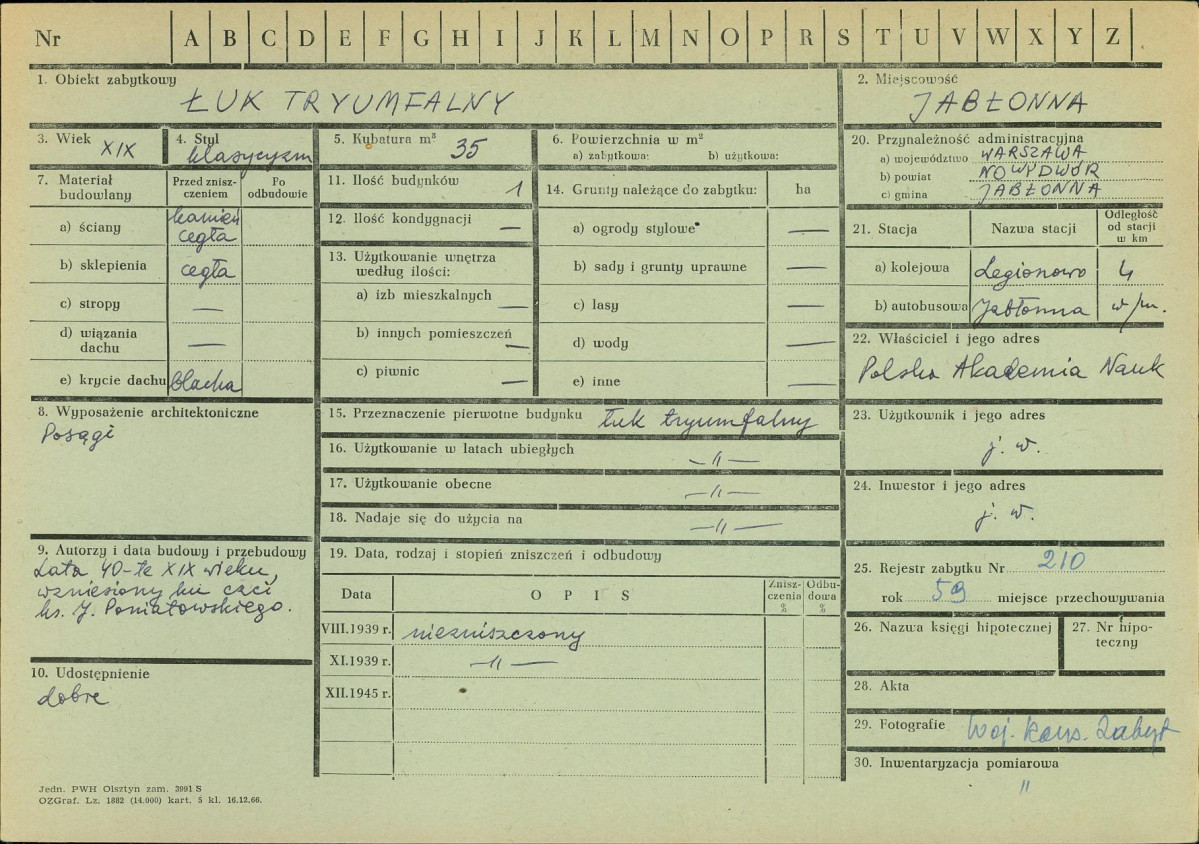 Nr A B C D E F G H I J K L M N O P R S T U V W X Y Z
1. Obiekt zabytkowy
ŁUK TRYUMFALNY
2. Miejscowość
JABŁONNA
3. Wiek XIX
4. Styl klasycyzm
5. Kubatura m³ 35
6. Powierzchnia w m²
a) zabytkowa: b) użytkowa:
7. Materiał budowlany
Przed zniszczeniem
Po odbudowie
a) ściany kamień
cegła
b) sklepienia cegła
c) stropy —
d) wiązania
dachu —
e) krycie dachu blacha
8. Wyposażenie architektoniczne
Posągi
9. Autorzy i data budowy i przebudowy
Lata 40-te XIX wieku,
wzniesiony ku czci
ks. J. Poniatowskiego.
10. Udostępnienie
dobre
11. Ilość budynków 1
12. Ilość kondygnacji —
13. Użytkowanie wnętrza
według ilości:
a) izb mieszkalnych —
b) innych pomieszczeń —
c) piwnic —
14. Grunty należące do zabytku: ha
a) ogrody stylowe —
b) sady i grunty uprawne —
c) lasy —
d) wody —
e) inne —
15. Przeznaczenie pierwotne budynku łuk tryumfalny
16. Użytkowanie w latach ubiegłych —〃—
17. Użytkowanie obecne —〃—
18. Nadaje się do użycia na —〃—
19. Data, rodzaj i stopień zniszczeń i odbudowy
Data O P I S Zniszczenia % Odbudowa %
VIII.1939 r. niezniszczony
XI.1939 r. —〃—
XII.1945 r.
20. Przynależność administracyjna
a) województwo WARSZAWA
b) powiat NOWYDWÓR
c) gmina JABŁONNA
21. Stacja Nazwa stacji Odległość od stacji w km
a) kolejowa Legionowo 4
b) autobusowa Jabłonna w/m.
22. Właściciel i jego adres
Polska Akademia Nauk
23. Użytkownik i jego adres
j. w.
24. Inwestor i jego adres
j. w.
25. Rejestr zabytku Nr 210
rok 59 miejsce przechowywania
26. Nazwa księgi hipotecznej
27. Nr hipo-
teczny
28. Akta
29. Fotografie Woj. Kons. Zabyt
30. Inwentaryzacja pomiarowa
〃
Jedn. PWH Olsztyn zam. 3991 S
OZGraf. Lz. 1882 (14.000) kart. 5 kl. 16.12.66.